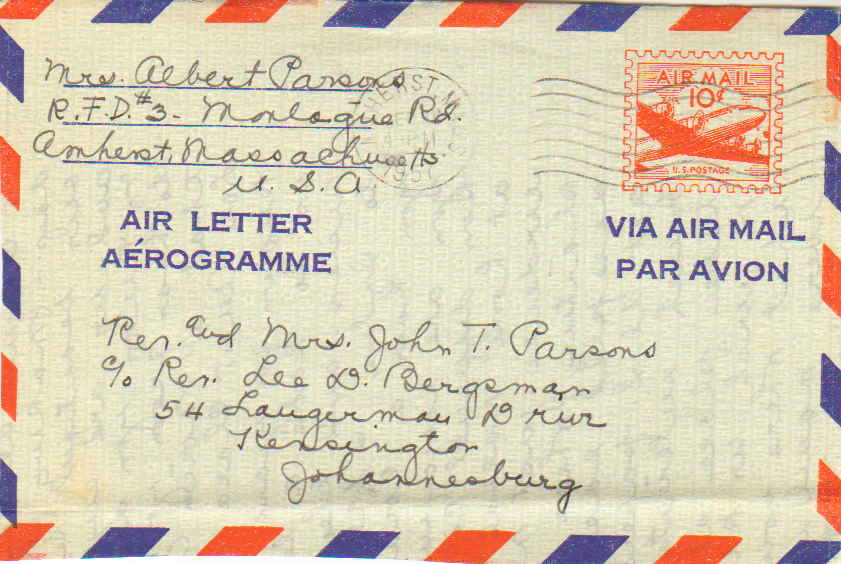 Mrs. Albert Parsons
R.F.D. #3 - Montague Rd.
Amherst, Massachusetts
U. S. A.
AMHERST
PM
1951
AIR MAIL
10¢
U.S. POSTAGE
AIR LETTER
AÉROGRAMME
VIA AIR MAIL
PAR AVION
Rev. and Mrs. John T. Parsons
c/o Rev. Lee D. Bergsman
54 Langerman Drive
Kensington
Johannesburg